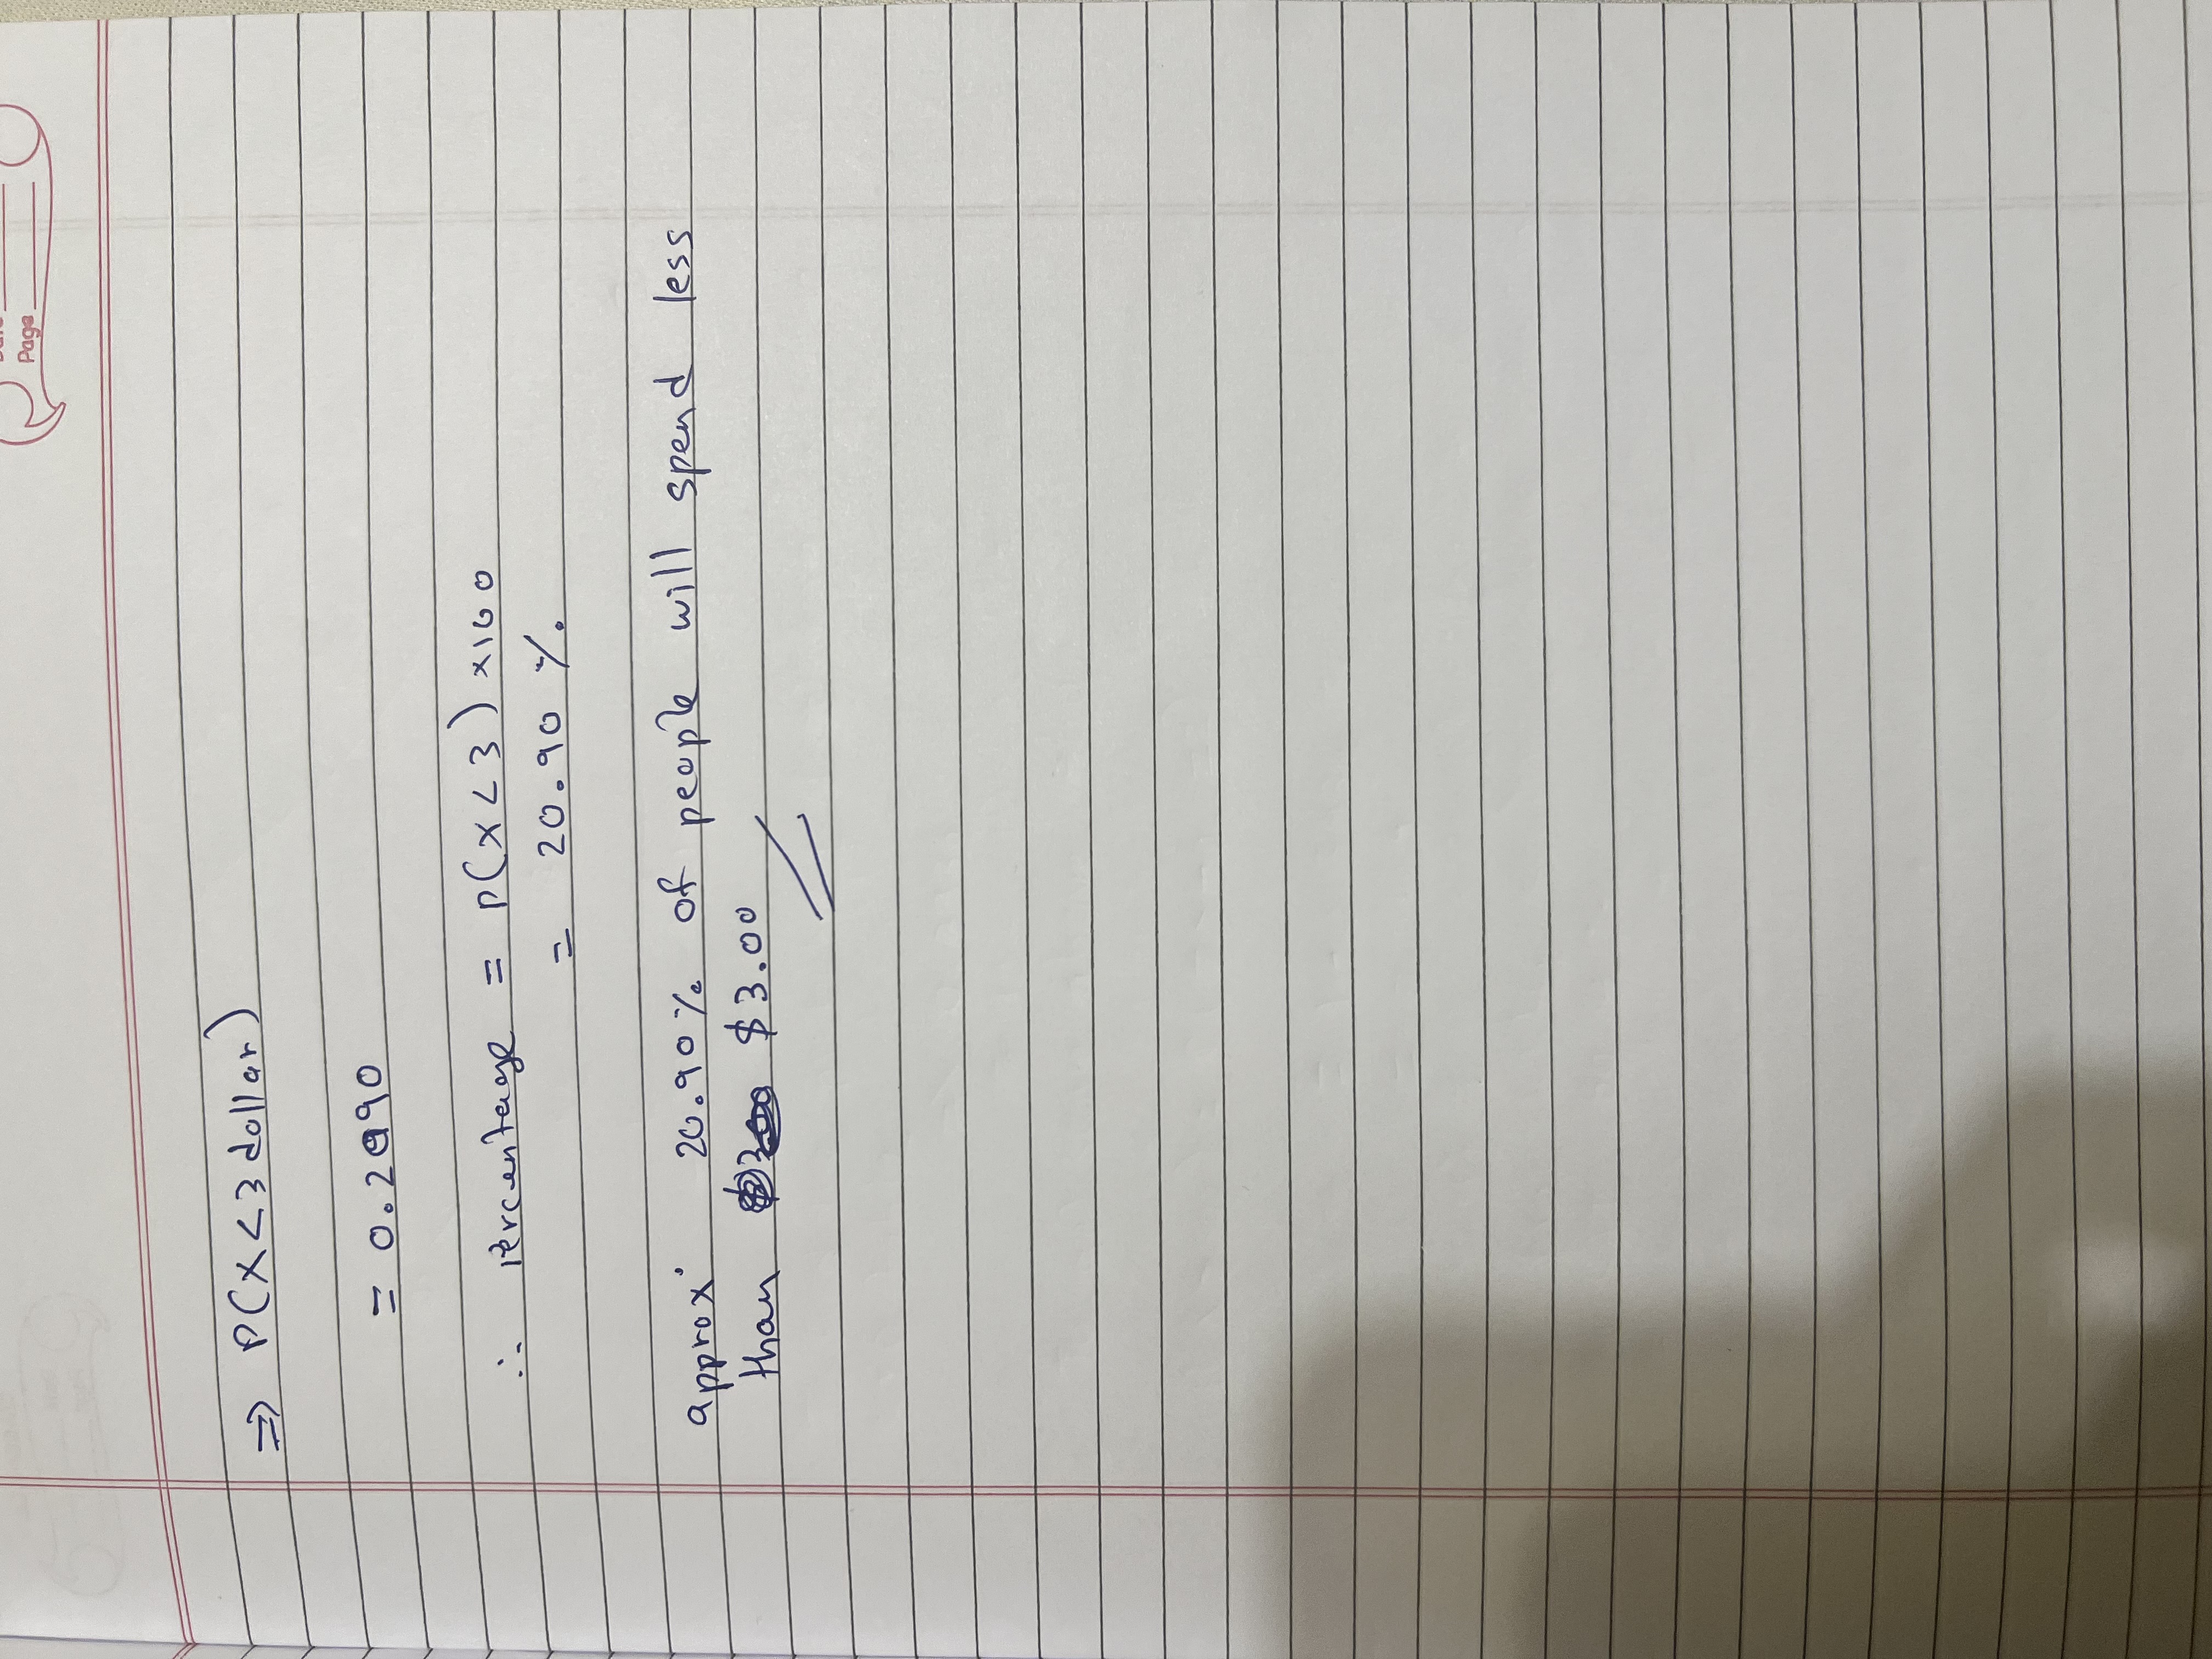 Page
⇒ P(X<3 dollar)
= 0.2090
∴ Percentage = P(X<3) ×100
= 20.90 %
approx. 20.90% of people will spend less
than $3.00